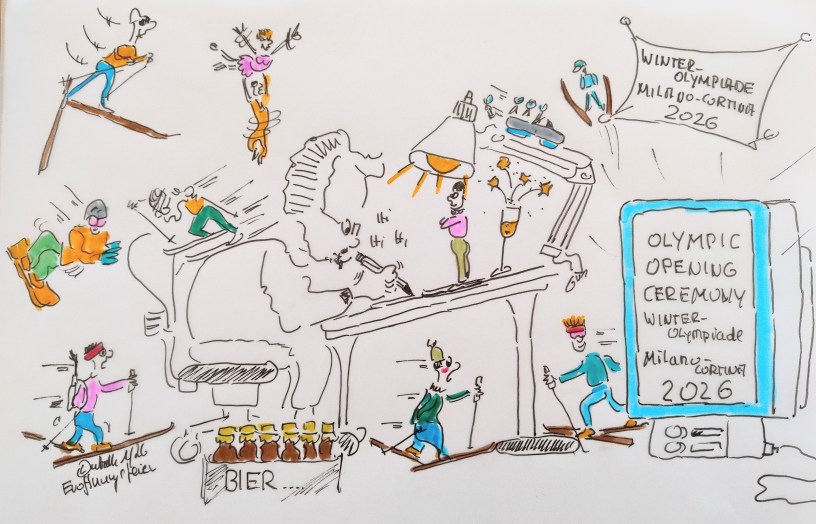 WINTER-
OLYMPIADE
MILANO-CORTINA
2026
Hi
Hi Hi
OLYMPIC
OPENING
CEREMONY
WINTER-
OLYMPIADE
MILANO-
CORTINA
2026
BIER....